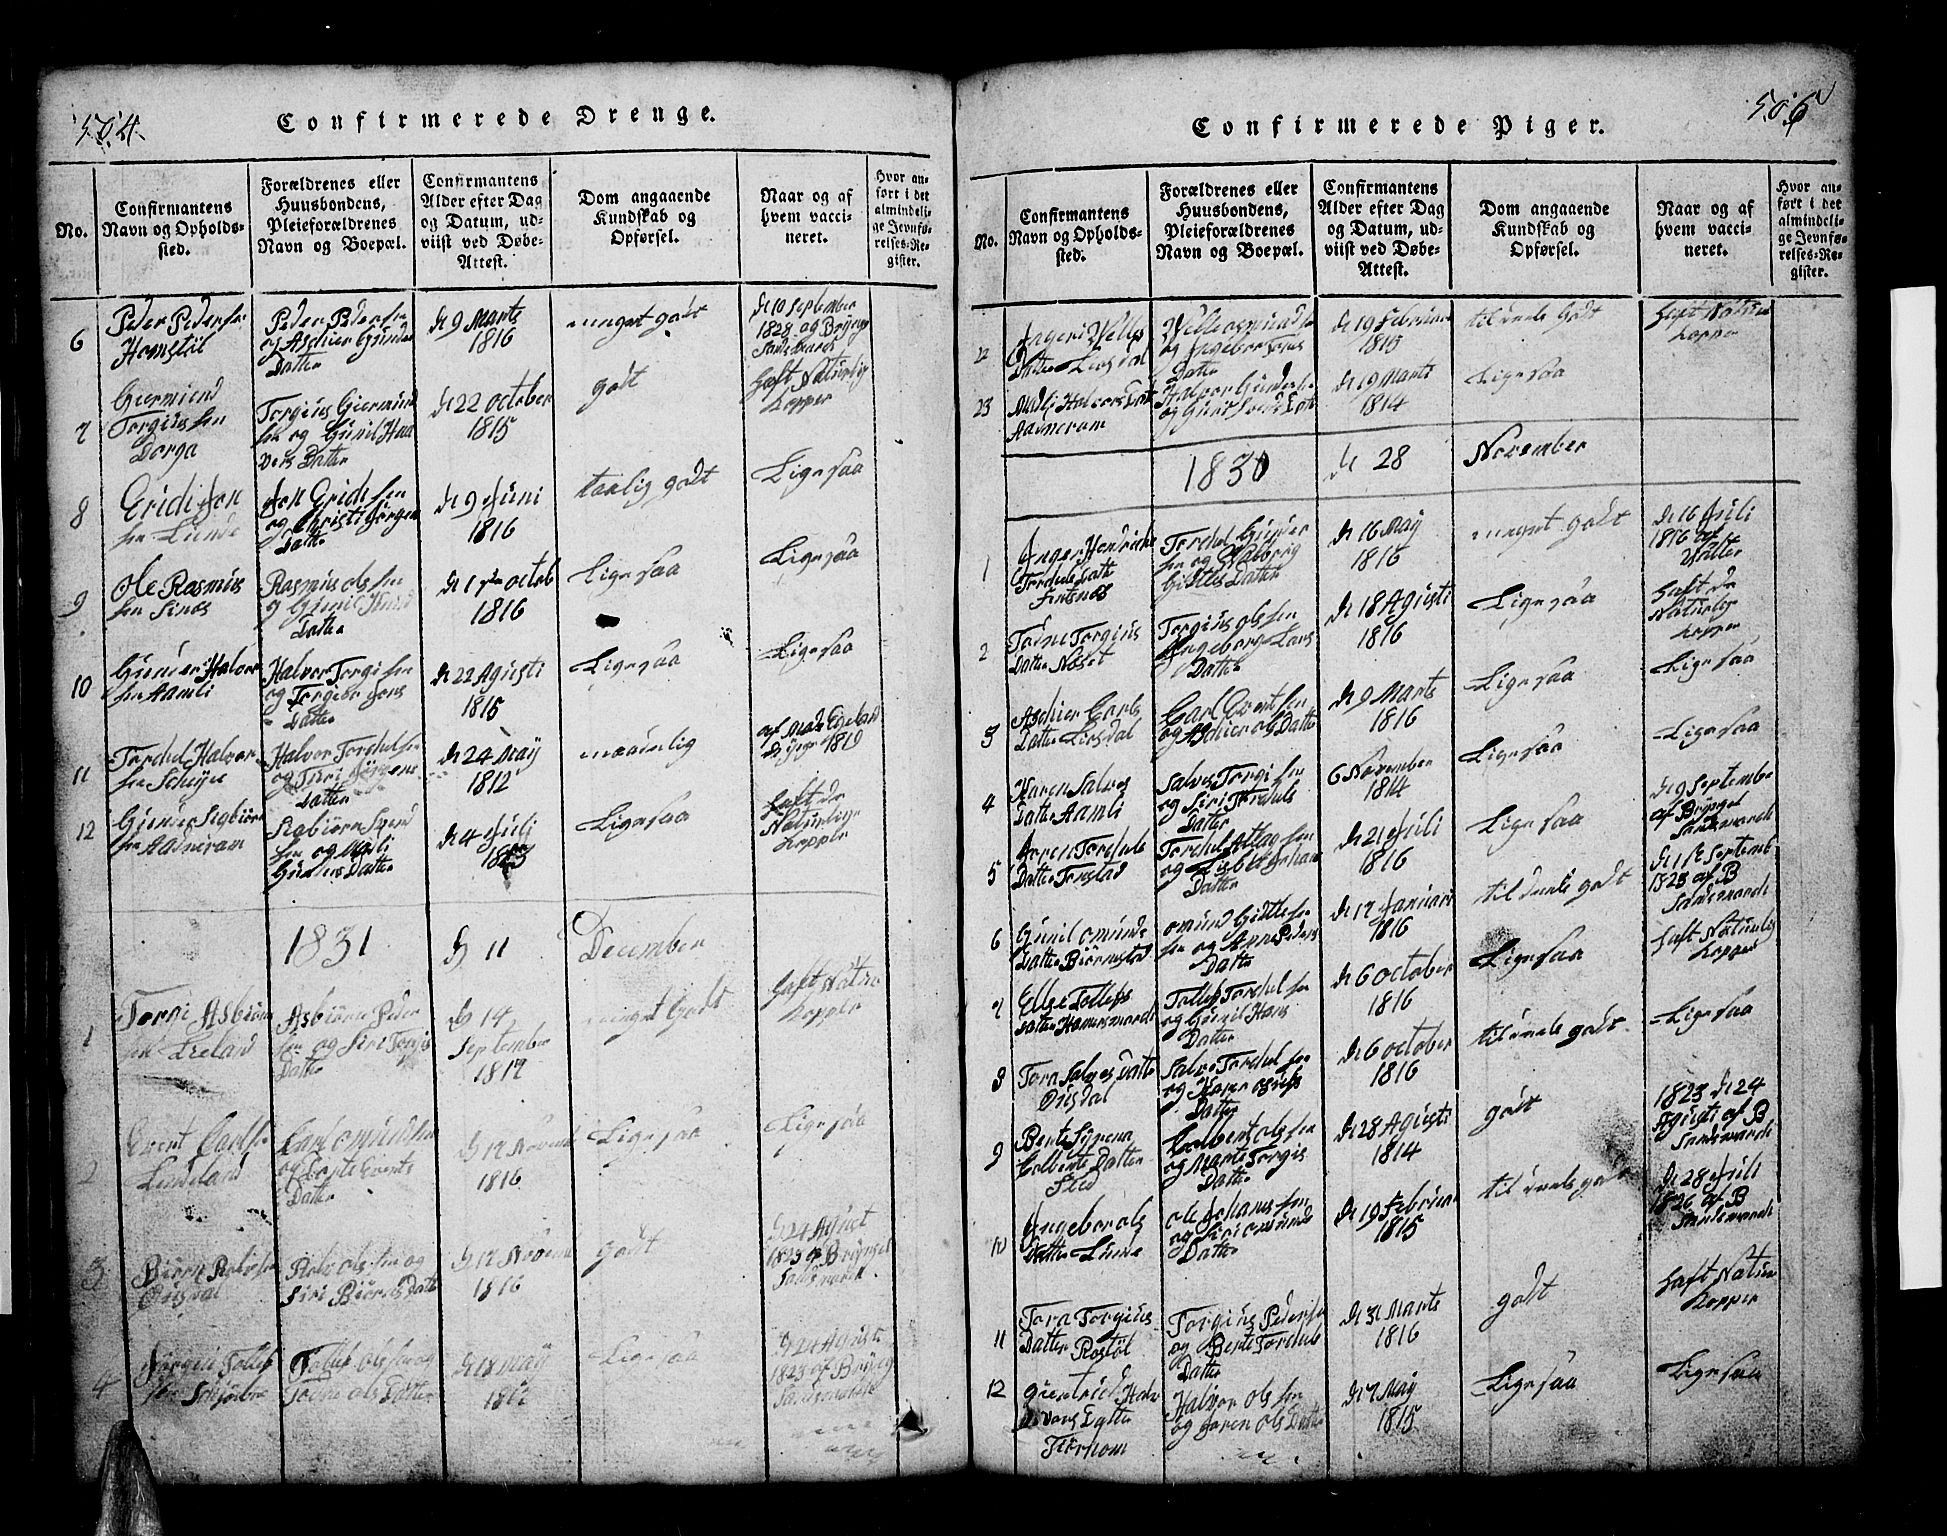 504.
Confirmerede Drenge.
No.
Confirmantens
Navn og Opholds-
sted.
Forældrenes eller
Huusbondens,
Pleieforældrenes
Navn og Boepæl.
Confirmantens
Alder efter Dag
og Datum, ud-
viist ved Døbe-
Attest.
Dom angaaende
Kundskab og
Opførsel.
Naar og af
hvem vacci-
neret.
Hvor an-
ført i det
almindeli-
ge Jevnfø-
relses-Re-
gister.
6
Peder Pedersen
Homstøl
Peder Pedersen
og Aschier Gunder
Datter
de 9 Marts
1816
meget godt
de 10 September
1828 og Brynge
Sandsmark
7
Giermund
Torgius sen
Dorga
Torgius Giermund
sen og Gunil Hal
vors Datter
de 22 october
1815
godt
haft Naturlig
kopper
8
Erich Jon
sen Lunde
Jon Erich sen
og Christi Jørgen
Datter
de 9 Juni
1816
taalig godt
Lige saa
9
Ole Rasmus
sen Sinas
Rasmus ols sen
og Gunil Knud
Datter
de 1 octob
1816
Lige saa
Lige saa
10
Gunder Halvor
sen Aamli
Halvor Torgi sen
og Torgebor Jons
Datter
de 22 Agusti
1815
Lige saa
Lige saa
11
Tordul Halvor
sen
Halvor Tordul sen
og Siri Jørgens
Datter
de 24 May
1812
maadelig
1819
12
Gunder Sigbiørn
sen Aadneram
Sigbiørn Svend
sen og Mali
Gunders Datter
de 4 Juli
Lige saa
haft de
Naturlige
kopper
1831
d 11
December
1
Torgi Asbiørn
sen Lieland
Asbiørn Peder
sen og Siri Torgis
Datter
d 14
September
1817
meget godt
haft Natur
kopper
2
Event Carlsen
Lindeland
Carl omund sen
og Berte Events
Datter
d 17 Novemb
1816
Lige saa
Lige saa
3
Biørn Rolvsen
Ousdal
Rolv ols sen og
Siri Biørns Datter
d 17 Novem
1816
godt
d 24 Agust
1823 af Brynel
Sandsmark
4
Jørgen Tollef
sen
Tollef ols sen og
Tone ols Datter
d 18 May
Lige saa
d 24 Agust
1823 af Bryng
Sandsmark
506
Confirmerede Piger.
No.
Confirmantens
Navn og Opholds-
sted.
Forældrenes eller
Huusbondens,
Pleieforældrenes
Navn og Boepæl.
Confirmantens
Alder efter Dag
og Datum, ud-
viist ved Døbe-
Attest.
Dom angaaende
Kundskab og
Opførsel.
Naar og af
hvem vacci-
neret.
Hvor an-
ført i det
almindeli-
ge Jevnfø-
relses-Re-
gister.
22
Ingeri Velles
Datter Liosdal
Velle osmund
og Ingebor Tors
Datter
de 19 Februar
1815
til deels godt
haft Natur
kopper
23
Malli Halvors Dat
Aadneram
Halvor Gunder sen
og Guro Svends Dat
de 19 Marts
1814
Lige saa
1830
de 28
November
1
Inger Hendricke
Torduls Datt
Fintsnes
Tordul Gunder
sen og Valborg
Gittles Datter
de 16 May
1816
meget godt
de 16 Juli
1816 af
Vatter
2
Tone Torgius
Datter Næset
Torgius ols sen
Ingeborg Lars
Datter
de 18 Agusti
1816
Lige saa
haft de
Naturlige
kopper
3
Aschier Carls
Datter Liosdal
Carl Event sen
og Aschier ols Datter
de 9 Marts
1816
Lige saa
Lige saa
4
Karen Salves
Datter Aamli
Salves Torgi sen
og Siri Torduls
Datter
6 November
1814
Lige saa
Lige saa
5
Joren Torduls
Datter Tonstad
Tordul Attlag sen
og Lisbet Johan
Datter
de 21 Juli
1816
Lige saa
de 9 Septembe
af Bryngel
Sandsmark
6
Gunil omunds
Datter Biørnestad
omund Gittle sen
og Anne Peders
Datter
de 17 Januari
1816
til deels godt
de 1 Septemb
1823 af B
Sandsmark
7
Ellse Tollefs
Datter Hamersmark
Tollef Tordul sen
og Gunil Hans
Datter
de 6 october
1816
Lige saa
haft Naturlig
kopper
8
Tora Salves Datte
Ousdal
Salve Tordul sen
og Karen
Datter
de 6 october
1816
til deels godt
Lige saa
9
Berte Syrena
Colbents Datter
Sted
Colbent ols sen
og Marte Torgis
Datter
de 28 Agusti
1814
godt
1823 de 24
Agusti af B
Sandsmark
10
Ingebor ols
Datter Lunde
ole Johannes sen
og Siri omund
Datter
de 19 Februar
1815
til deels godt
de 28 Juli
1826 af B
Sandsmark
11
Tora Torgius
Datter Rostøl
Torgius Peder sen
og Berte Torduls
Datter
de 31 Marts
1816
godt
haft Natur
kopper
12
Giertrud Hal
vors Datter
Halvor ols sen
og Joren ols Datter
de 7 May
1815
Lige saa
Lige saa